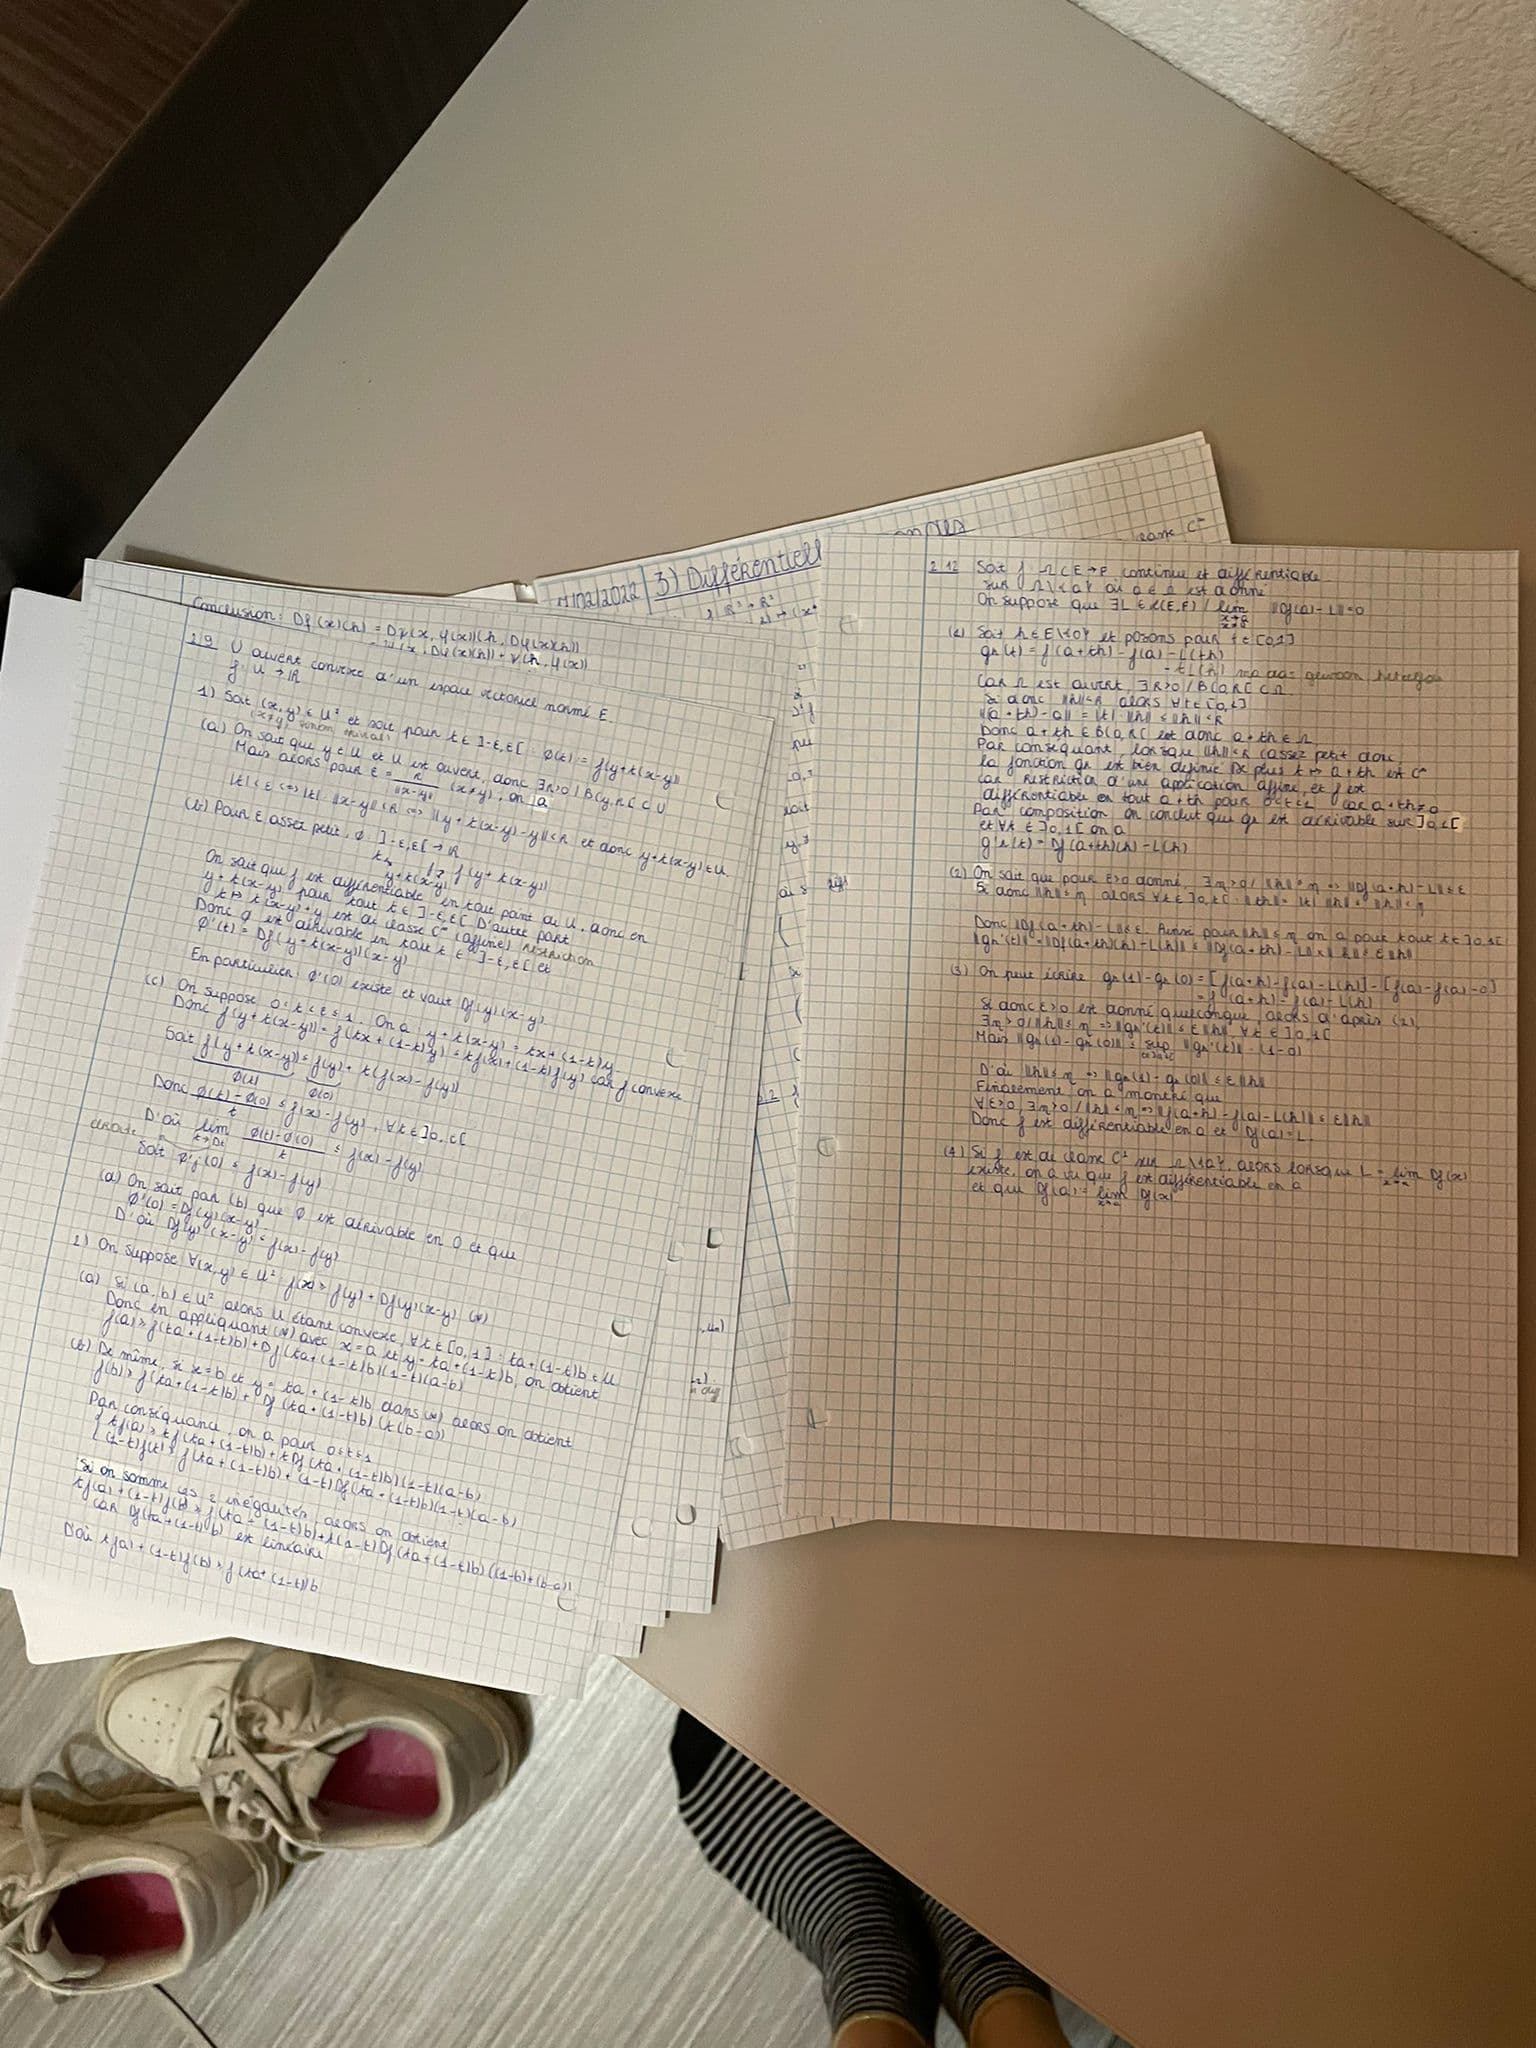 Conclusion: Df(x)(h) = Dγ(x, φ(x))(h, Dφ(x)(h))
(x, Dφ(x)(h)) + γ(h, φ(x))
2.9 U ouvert convexe d'un espace vectoriel normé E.
f: U → ℝ
1) Soit (x,y) ∈ U² et soit pour t ∈ ]-ε,ε[ : ϕ(t) = f(y+t(x-y))
(x≠y sinon trivial)
(a) On sait que y ∈ U et U est ouvert, donc ∃R>0 / B(y,R[ ⊂ U
Mais alors pour ε = R/||x-y|| (x≠y), on a
|t| < ε <=> |t|·||x-y|| < R <=> ||y + t(x-y)-y|| < R et donc y+t(x-y) ∈ U.
(b) Pour ε assez petit, ϕ : ]-ε,ε[ → ℝ
t ↦ f(y + t(x-y))
y+t(x-y)
On sait que f est différentiable en tout point de U, donc en
y + t(x-y) pour tout t ∈ ]-ε,ε[ D'autre part
t ↦ t(x-y)+y est de classe C^∞ (affine) restriction
Donc ϕ est dérivable en tout t ∈ ]-ε,ε[ et
ϕ'(t) = Df(y+t(x-y))(x-y)
En particulier: ϕ'(0) existe et vaut Df(y)(x-y)
(c) On suppose 0<t<ε≤1. On a y + t(x-y) = tx + (1-t)y.
Donc f(y + t(x-y)) = f(tx + (1-t)y) ≤ tf(x)+(1-t)f(y) car f convexe
Soit f(y + t(x-y)) ≤ f(y) + t(f(x)-f(y))
ϕ(t) ϕ(0)
Donc (ϕ(t)-ϕ(0))/t ≤ f(x)-f(y), ∀t∈]0,ε[
D'où lim t→0+ (ϕ(t)-ϕ(0))/t ≤ f(x)-f(y)
Soit ϕ'd(0) ≤ f(x)-f(y)
(d) On sait par (b) que ϕ est dérivable en 0 et que
ϕ'(0) = Df(y)(x-y).
D'où Df(y)(x-y) ≤ f(x)-f(y)
2) On suppose ∀(x,y) ∈ U² f(x) ≥ f(y) + Df(y)(x-y) (*)
(a) Si (a,b) ∈ U² alors U étant convexe, ∀t∈[0,1] : ta+(1-t)b ∈ U
Donc en appliquant (*) avec x=a et y=ta+(1-t)b, on obtient
f(a) ≥ f(ta+(1-t)b)+Df(ta+(1-t)b)(1-t)(a-b)
(b) De même, si x=b et y= ta + (1-t)b dans (*) alors on obtient
f(b) ≥ f(ta+(1-t)b) + Df(ta+(1-t)b)(t(b-a))
Par conséquence, on a pour 0≤t≤1
tf(a) ≥ tf(ta+(1-t)b)+tDf(ta+(1-t)b)(1-t)(a-b)
(1-t)f(t) ≥ f(ta+(1-t)b) + (1-t)Df(ta+(1-t)b)(1-t)(a-b)
Si on somme ces 2 inégalités, alors on obtient
tf(a)+(1-t)f(b) ≥ f(ta+(1-t)b)+t(1-t)Df(ta+(1-t)b)((1-b)+(b-a))
car Df(ta+(1-t)b) est linéaire
D'où tf(a)+(1-t)f(b) ≥ f(ta+(1-t)b
/02/2022 3) Différentiell
classe C²
2.12 Soit f Ω⊂E→F continue et différentiable
sur Ω\{a} où a ∈ Ω est donné
On suppose que ∃L ∈ ℒ(E,F) / lim x→a x≠a ||Df(a)-L||=0
(1) Soit h∈E\{0} et posons pour t∈[0,1]
gh(t) = f(a+th)-f(a)-L(th)
- tL(h) ma das gewoon hetzelfde
Car Ω est ouvert, ∃R>0 / B(a,R[ ⊂ Ω.
Si donc ||h||<R alors ∀t∈[0,1]
||(a+th)-a|| = |t|·||h|| ≤ ||h||<R
Donc a+th ∈ B(a,R[ et donc a+th ∈ Ω
Par conséquant, lorsque ||h||<R (assez petit donc)
la fonction gh est bien définie. De plus t ↦ a+th est C^∞
car restriction d'une application affine, et f est
différentiable en tout a+th pour 0<t≤1 car a+th≠a
Par composition on conclut que gh est dérivable sur ]0,1[
et ∀t ∈ ]0,1[ on a
g'h(t) = Df(a+th)(h) - L(h)
(2) On sait que pour ε>0 donné, ∃η>0 / ||h||≤η => ||Df(a+h)-L||≤ε
Si donc ||h||≤η alors ∀t∈]0,1[ : ||th|| = |t| ||h|| < ||h|| ≤ η
Donc ||Df(a+th)-L||≤ε. Ainsi pour ||h||≤η on a pour tout t∈]0,1[
||gh'(t)|| = ||Df(a+th)(h)-L(h)|| ≤ ||Df(a+th)-L|| × ||h|| ≤ ε||h||
(3) On peut écrire gh(1)-gh(0)=[f(a+h)-f(a)-L(h)]-[f(a)-f(a)-0]
= f(a+h)-f(a)-L(h)
Si donc ε>0 est donné quelconque, alors d'après (2),
∃η>0/||h||≤η => ||gh'(t)|| ≤ ε||h|| ∀t∈]0,1[
Mais ||gh(1)-gh(0)|| ≤ sup 0<t<1 ||gh'(t)|| (1-0)
D'où ||h||≤η => ||gh(1)-gh(0)|| ≤ ε||h||
Finalement on a montré que
∀ε>0, ∃η>0 / ||h||≤η => ||f(a+h)-f(a)-L(h)|| ≤ ε||h||
Donc f est différentiable en a et Df(a)=L.
(4) Si f est de classe C¹ sur Ω\{a}, alors lorsque L = lim x→a Df(x)
existe, on a vu que f est différentiable en a
et que Df(a) = lim x→a Df(x)